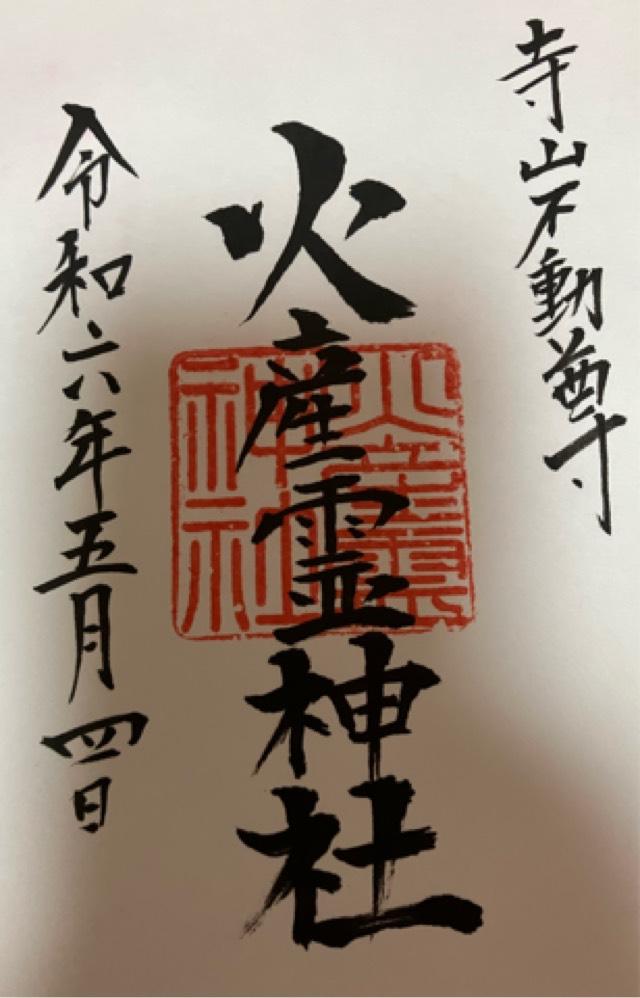 寺山不動尊
火産霊神社
火産霊神社
令和六年五月四日